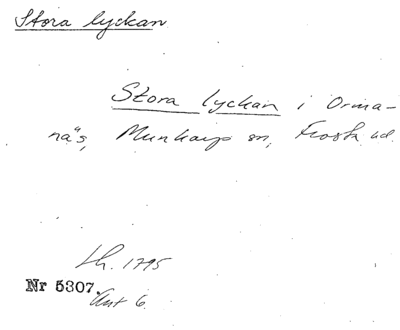 Stora lyckan
Stora lyckan i Orma-
näs, Munkarp sn, Frosta hd.
Lh. 1795
Nr 5307.
Akt 6.